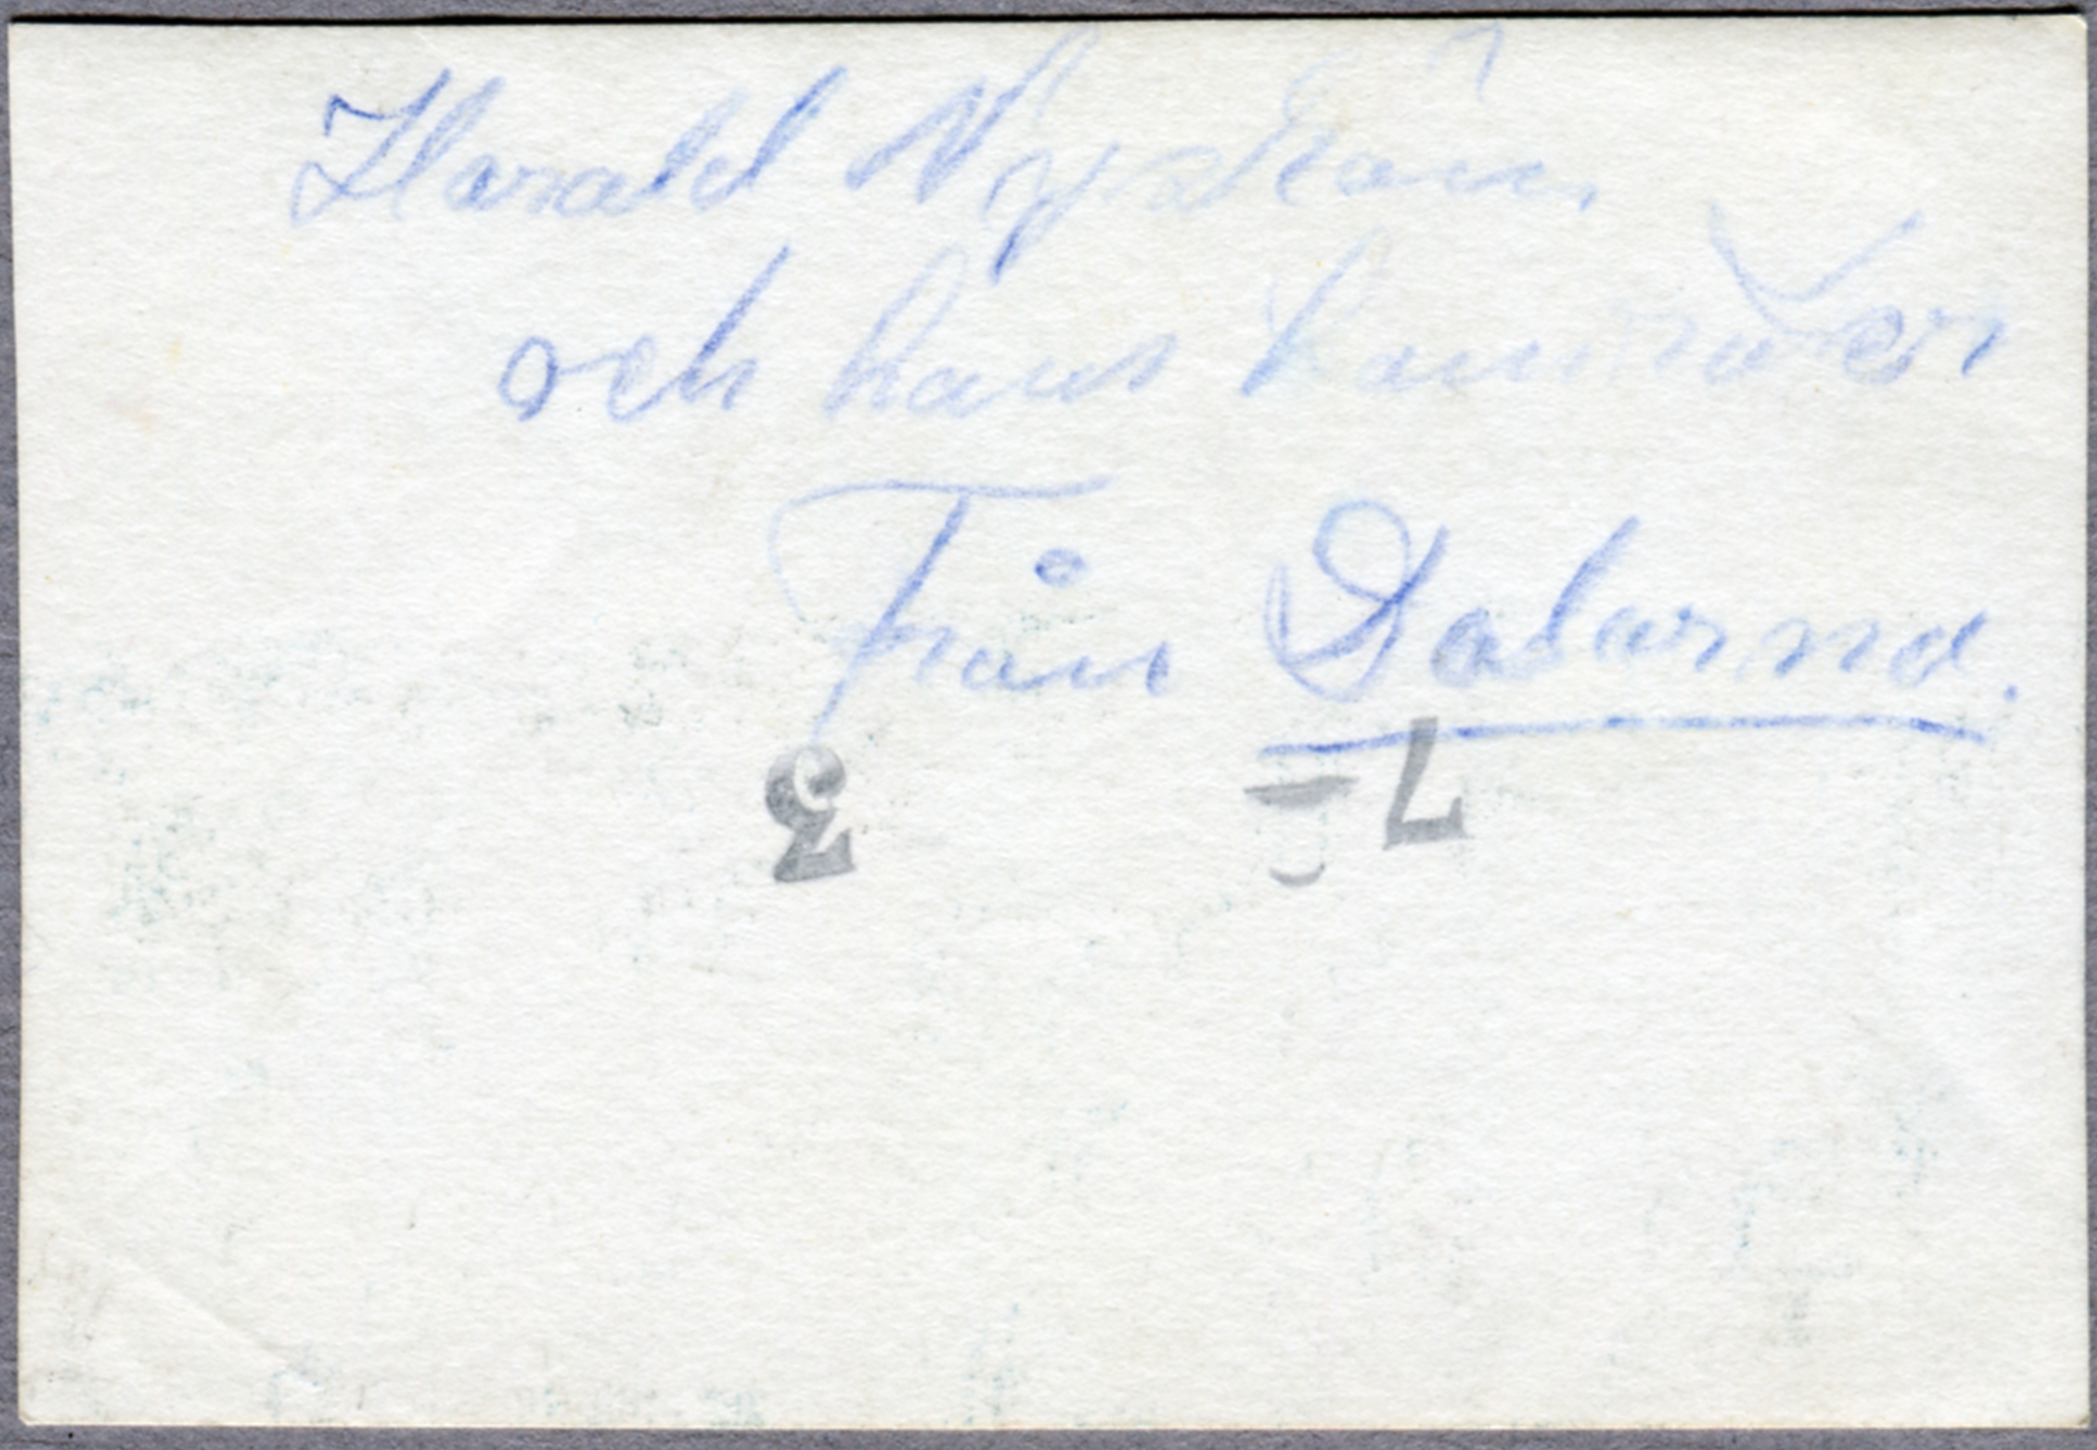 Harald Nyström
och hans kamrater
Från Dalarna.